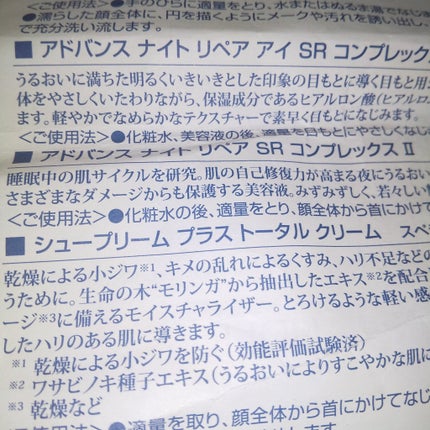 <ご使用法>●手のひらに適量をとり、水またはぬるま湯でなじま
●濡らした顔全体に、円を描くようにメークや汚れを誘い出し、
で充分洗い流します。
■ アドバンス ナイト リペア アイ SR コンプレック
うるおいに満ちた明るくいきいきとした印象の目もとに導く目もと用
体をやさしくいたわりながら、保湿成分であるヒアルロン酸(ヒアルロ
ます。軽やかでなめらかなテクスチャーで素早く目もとになじみます。
<ご使用法>●化粧水、美容液の後、適量を目もとにやさしくなじ
■ アドバンス ナイト リペア SR コンプレックス II
睡眠中の肌サイクルを研究。肌の自己修復力が高まる夜にうるおい
さまざまなダメージからも保護する美容液。みずみずしく、若々しい
<ご使用法>●化粧水の後、適量をとり、顔全体から首にかけて
■ シュープリーム プラス トータル クリーム スペ
乾燥による小ジワ※1、キメの乱れによるくすみ、ハリ不足などの
うために。生命の木“モリンガ”から抽出したエキス※2を配合
ージ※3に備えるモイスチャライザー。とろけるような軽い感
したハリのある肌に導きます。
※1 乾燥による小ジワを防ぐ(効能評価試験済)
※2 ワサビノキ種子エキス(うるおいによりすこやかな肌に
※3 乾燥など
●適量を取り、顔全体から首にかけてなじ